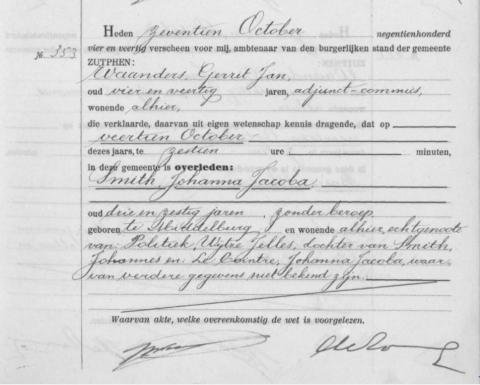 Heden zeventien October negentienhonderd
№ 353 vier en veertig verscheen voor mij, ambtenaar van den burgerlijken stand der gemeente
ZUTPHEN:
Waanders, Gerrit Jan,
oud vier en veertig jaren, adjunct-commies,
wonende alhier,
die verklaarde, daarvan uit eigen wetenschap kennis dragende, dat op
veertien October
dezes jaars, te zestien ure minuten,
in deze gemeente is overleden:
Smith, Johanna Jacoba,
oud drie en zestig jaren, zonder beroep
geboren te Middelburg en wonende alhier, echtgenoote
van Politiek, Wytze Jelles, dochter van Smith,
Johannes en Le Cointre, Johanna Jacoba, waar-
van verdere gegevens niet bekend zijn.
Waarvan akte, welke overeenkomstig de wet is voorgelezen.